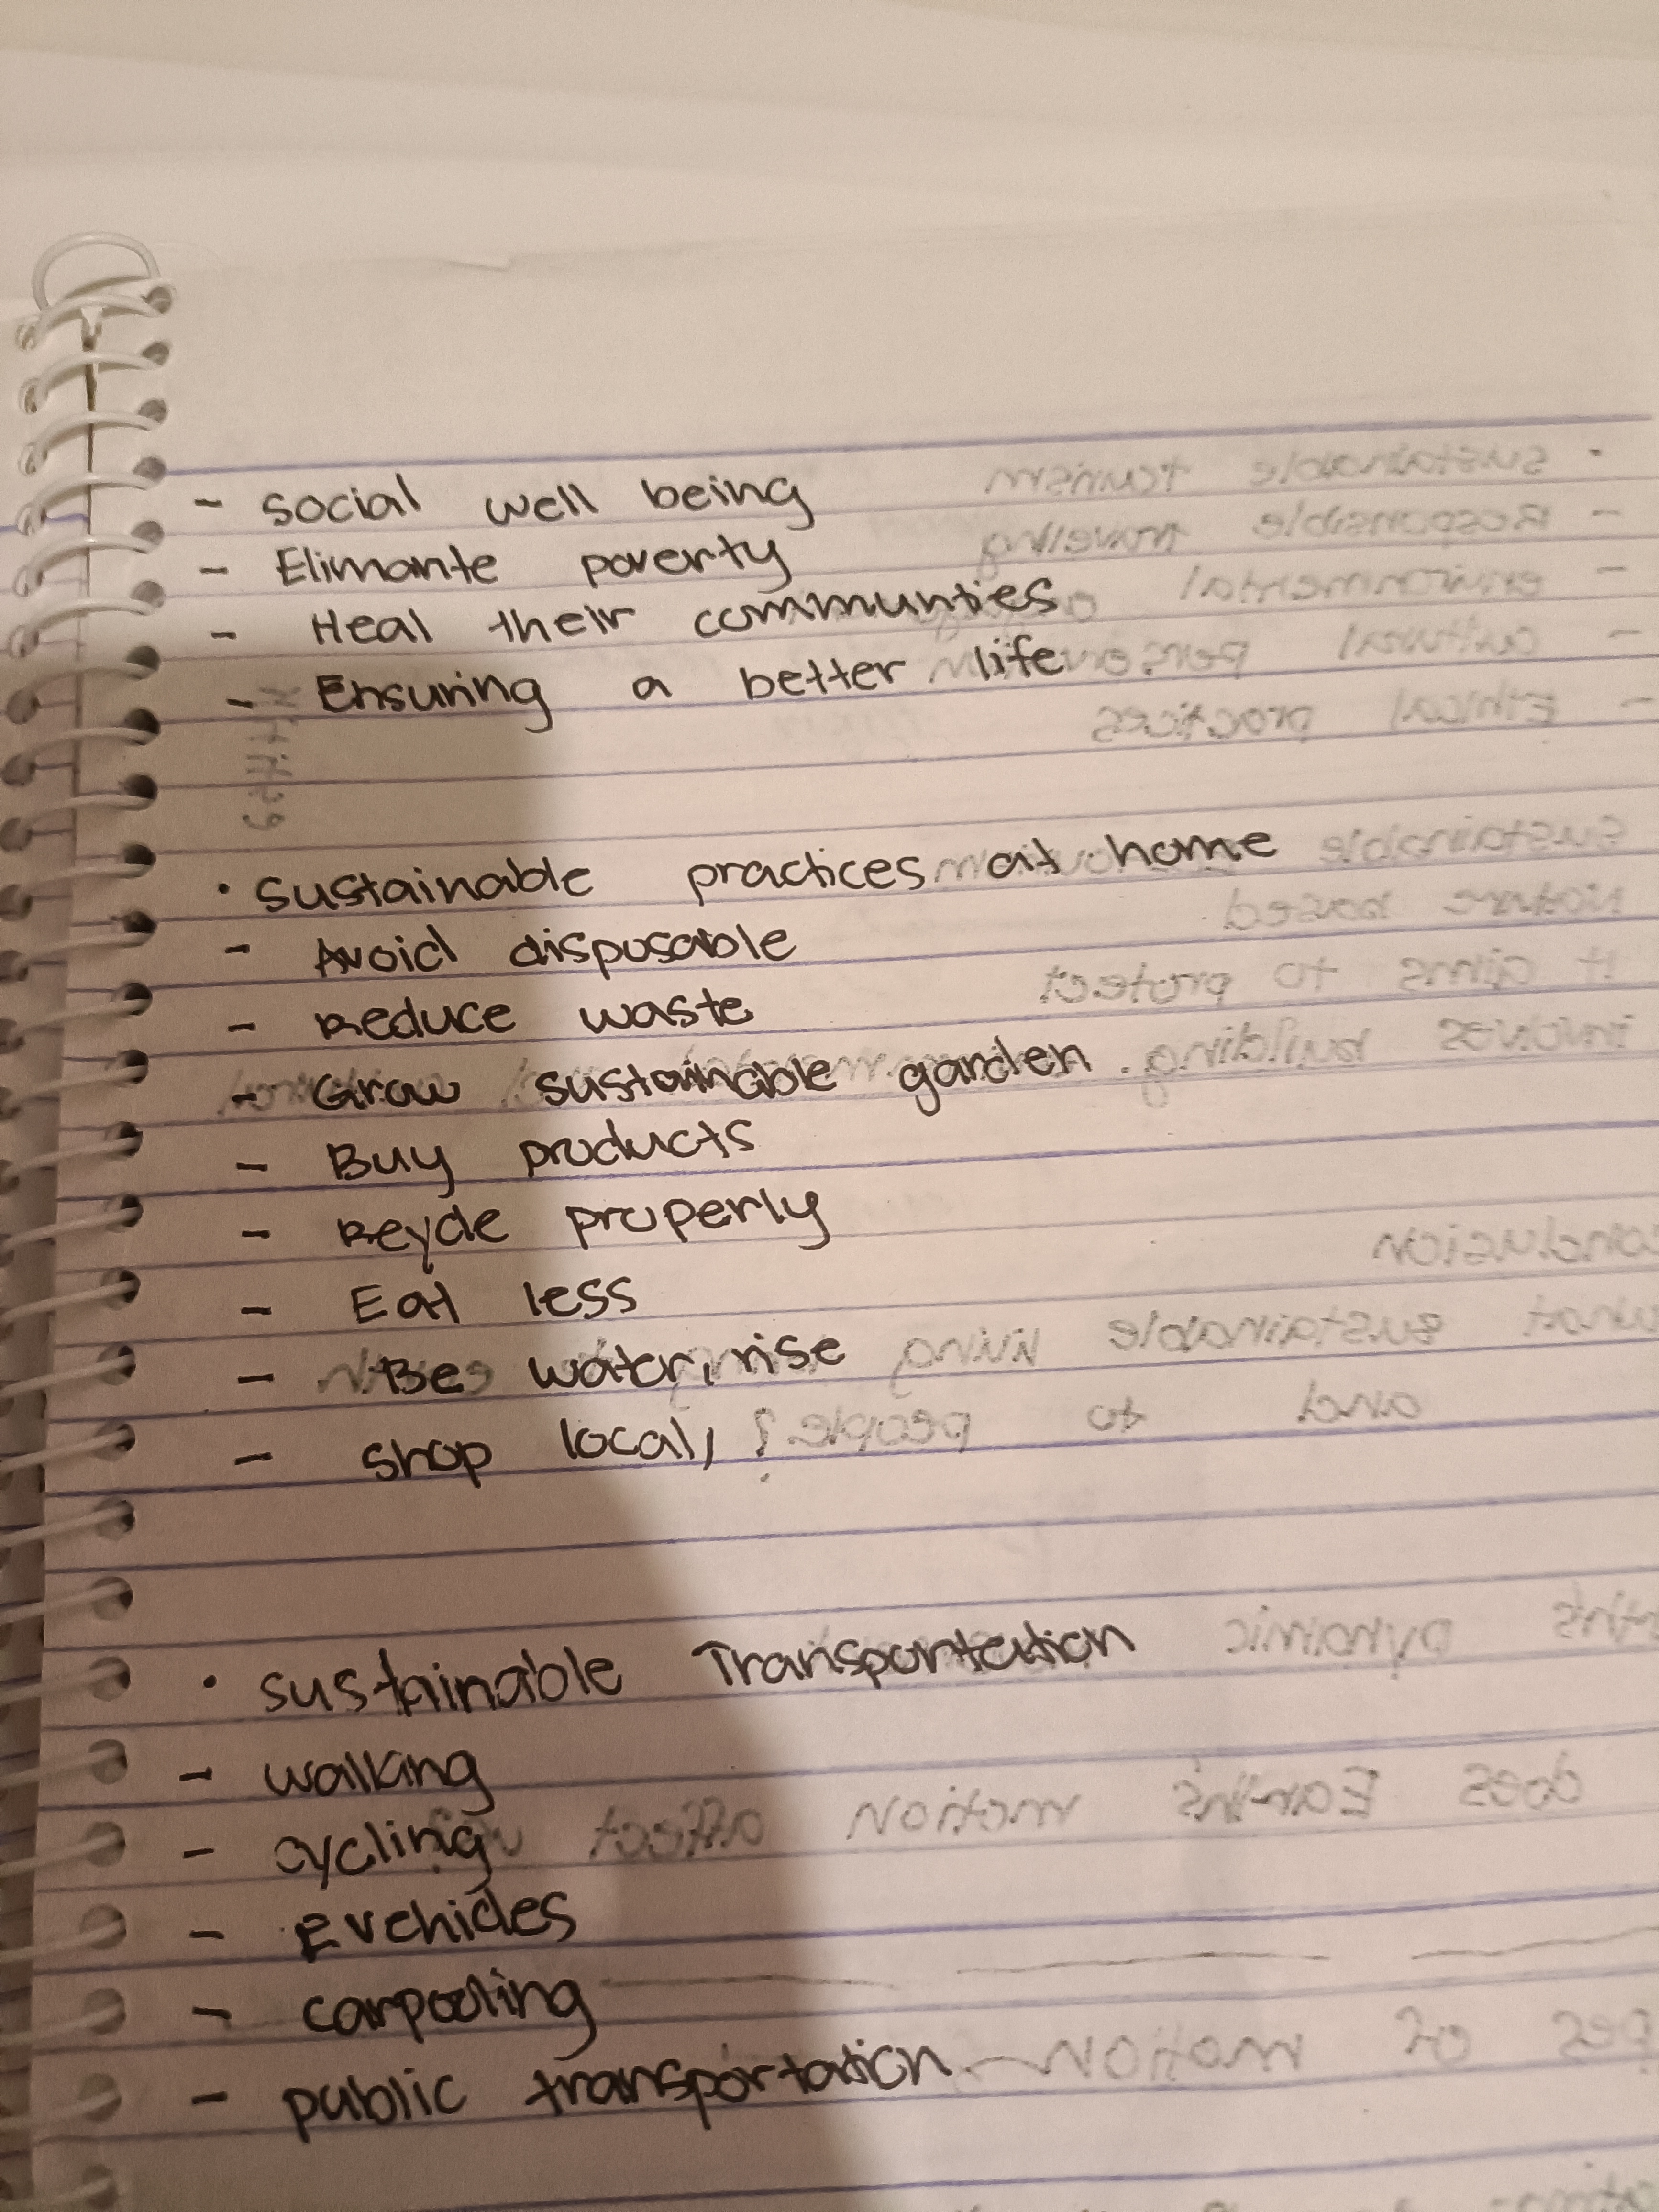 - social well being
- Elimante poverty
- Heal their communties
- Ensuring a better life
• sustainable practices at home
- Avoid disposable
- Reduce waste
- Grow sustainable garden
- Buy products
- Reycle properly
- Eat less
- Be water, rise
- shop local,
• sustainable Transportation
- walking
- cycling
- E vehicles
- carpooling
- public transportation